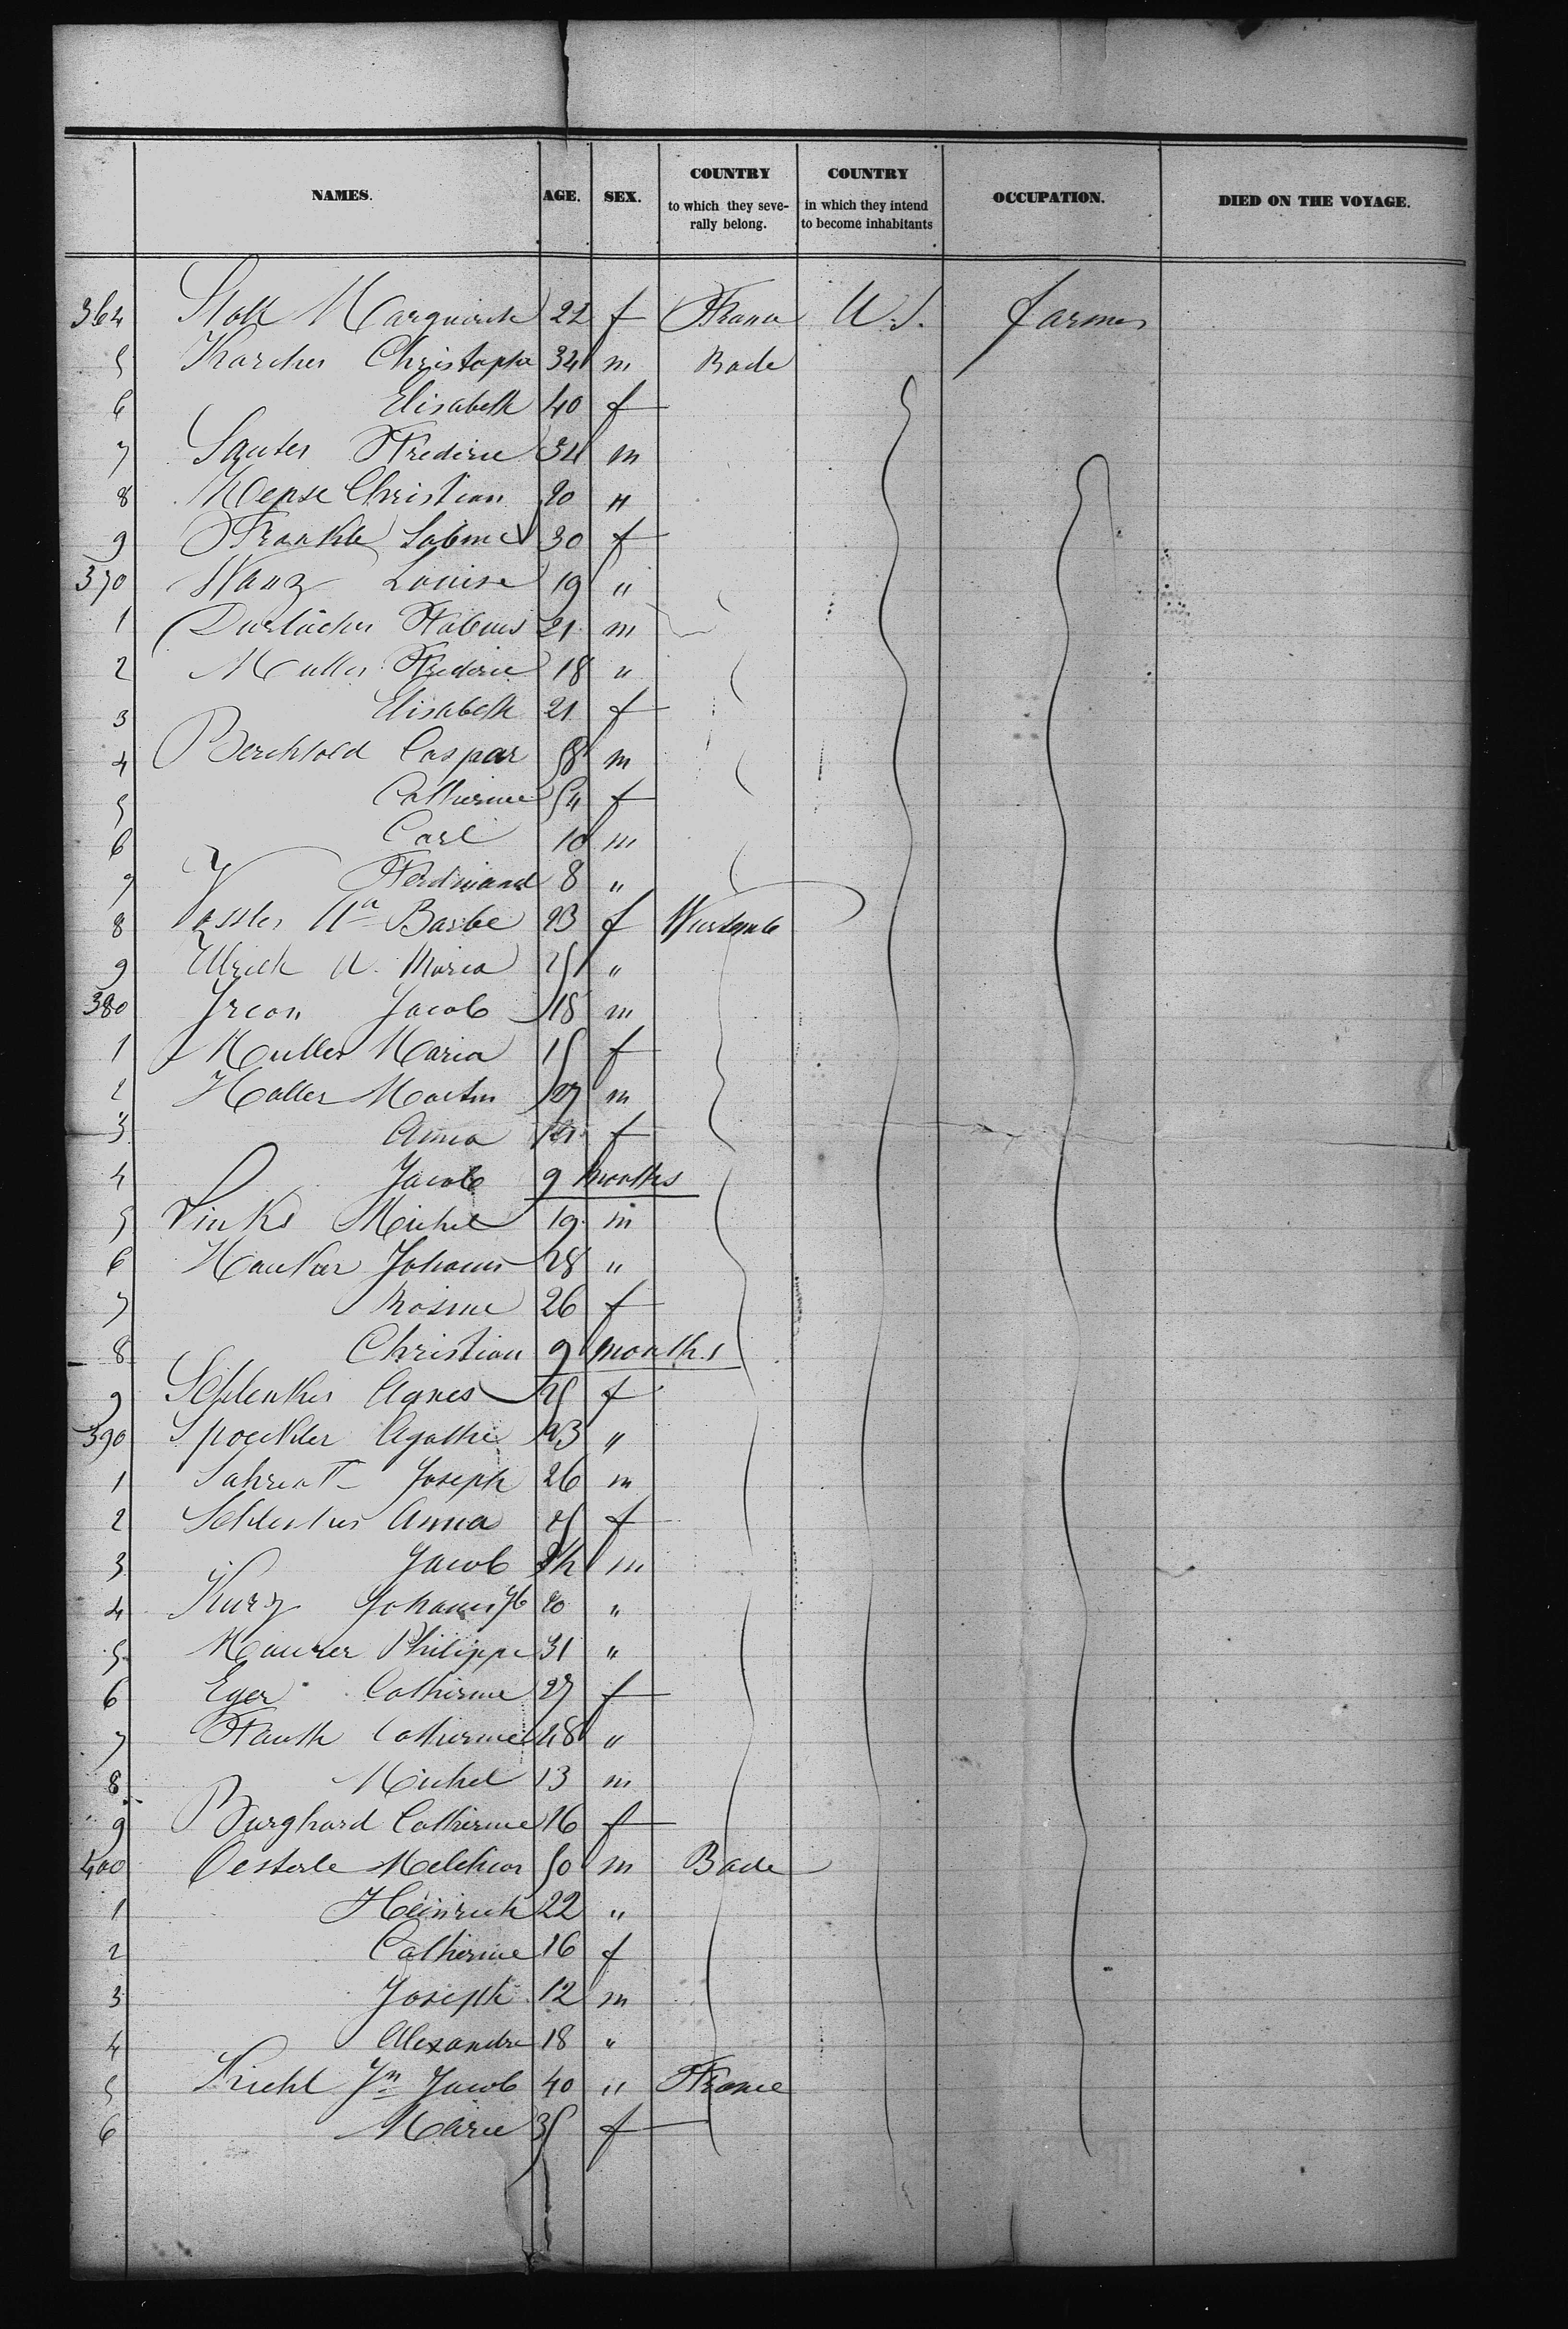 NAMES. AGE. SEX. COUNTRY to which they severally belong. COUNTRY in which they intend to become inhabitants OCCUPATION. DIED ON THE VOYAGE.
364 Stoll Marguerite 22 f France U.S. farmer
5 Karcher Christophe 34 m Bade
6 Elisabeth 40 f
7 Sauter Frederic 34 m
8 Christian 20 "
9 Frankle Sabine 30 f
370 Wanz Louise 19 "
1 Durlacher 21 m
2 Muller Frederic 18 "
3 Elisabeth 21 f
4 Berchtold Caspar 58 m
5 Catherine 54 f
6 Carl 10 m
7 Ferdinand 8 "
8 Vossler Aª Barbe 23 f Wurtemb
9 Ulrich A. Maria 25 "
380 Jrion Jacob 18 m
1 Muller Maria 15 f
2 Haller Martin 27 m
3 Anna f
4 Jacob 9 months
5 Michel 19 m
6 Johannes 28 "
7 Rosine 26 f
8 Christian 9 months
9 Schlenker Agnes 25 f
390 Agathe 23 "
1 Joseph 26 m
2 Schlenker Anna 25 f
3 Jacob m
4 Kurz Johannes 20 "
5 Maurer Philippe 31 "
6 Eger Catherine 27 f
7 Fauth Catherine 48 "
8 Michel 13 m
9 Burghard Catherine 16 f
400 Oesterle Melchior 50 m Bade
1 Heinrich 22 "
2 Catherine 16 f
3 Joseph 12 m
4 Alexandre 18 "
5 Kiehl Jn Jacob 40 " France
6 Marie 35 f